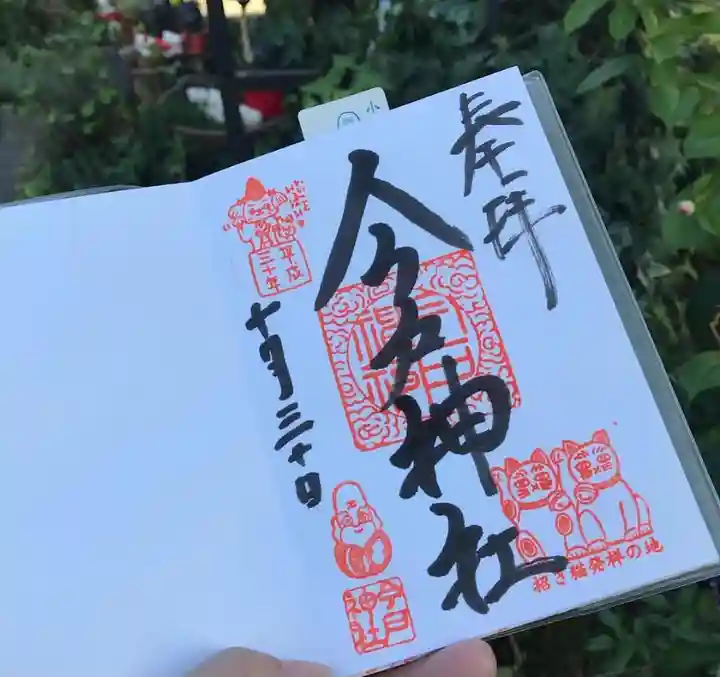 奉拝
今戸神社
招き猫発祥の地
平成
三十年
十月三十日
今戸
神社
小